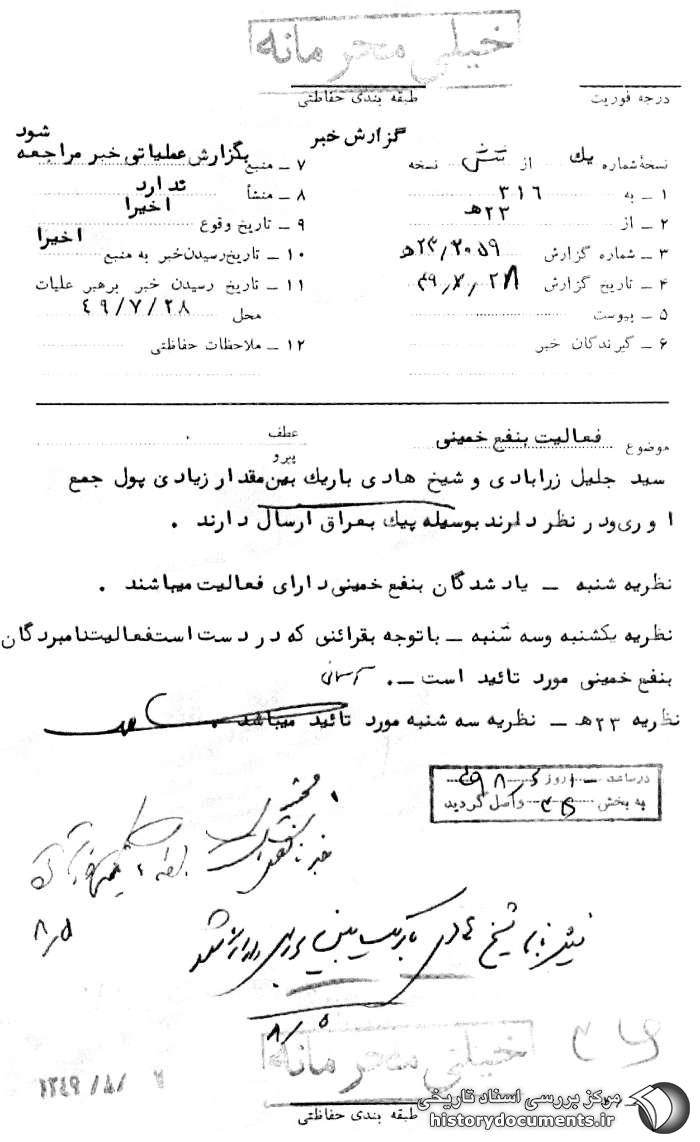 خیلی محرمانه
درجه فوریت
طبقه بندی حفاظتی
گزارش خبر
نسخهٔ شماره یك از شش نسخه
۱ ــ به ۳۱۶
۲ ــ از ۲۳هـ
۳ ــ شماره گزارش ۲۳/۲۰۵۹هـ
۴ ــ تاریخ گزارش ۴۹/۷/۲۸
۵ ــ پیوست
۶ ــ گیرندگان خبر
۷ ــ منبع بگزارش عملیاتی خبر مراجعه شود
۸ ــ منشأ ندارد
۹ ــ تاریخ وقوع اخیرا
۱۰ ــ تاریخ رسیدن خبر به منبع اخیرا
۱۱ ــ تاریخ رسیدن خبر برهبر علیات
محل ۴۹/۷/۲۸
۱۲ ــ ملاحظات حفاظتی
موضوع فعالیت بنفع خمینی
عطف
پیرو
سید جلیل زرابادی و شیخ هادی باریك بین مقدار زیادی پول جمع
اوری ودر نظر دارند بوسیله پیك بعراق ارسال دارند .
نظریه شنبه ــ یاد شدگان بنفع خمینی دارای فعالیت میباشند .
نظریه یکشنبه وسه شنبه ــ باتوجه بقرائنی که در دست است فعالیت نامبردگان
بنفع خمینی مورد تائید است ــ.
نظریه ۲۳هـ ــ نظریه سه شنبه مورد تائید میباشد .
در ساعت ۱۰ روز
به بخش واصل گردید
شیخ هادی باریک بین
۸/۵
۸/۵
خیلی محرمانه
طبقه بندی حفاظتی
مرکز بررسی اسناد تاریخی
historydocuments.ir